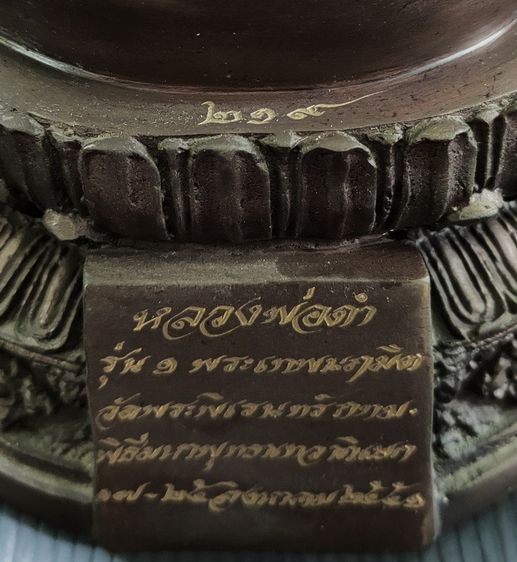 ๒๑๙
หลวงพ่อดำ
รุ่น ๑ พระเทพนรามิต
วัดพระพิเรนทร์
พิธีมหาพุทธ
๑๗-๒๕ สิงหาคม ๒๕๕๑